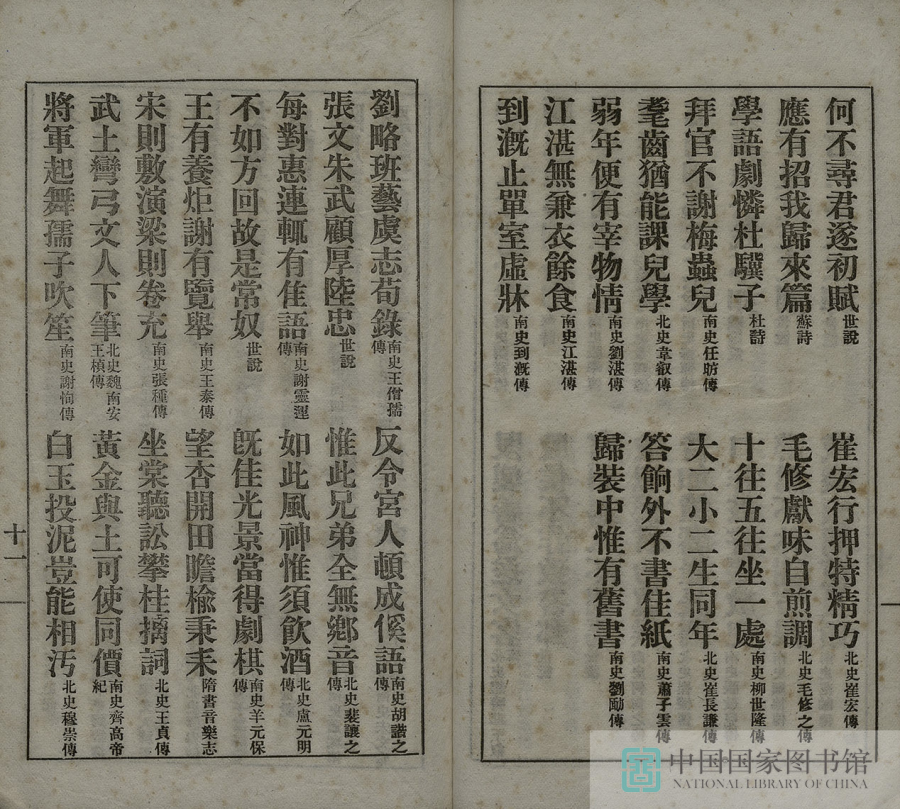 何不尋君遂初賦世說 崔宏行押特精巧北史崔宏傳
應有招我歸來篇蘇詩 毛修獻味自煎調北史毛修之傳
學語劇憐杜驥子杜詩 十往五往坐一處南史柳世隆傳
拜官不謝梅蟲兒南史任昉傳 大二小二生同年北史崔長謙傳
耄齒猶能課兒學北史韋叡傳 答餉外不書佳紙南史蕭子雲傳
弱年便有宰物情南史劉湛傳 歸裝中惟有舊書南史劉勔傳
江湛無兼衣餘食南史江湛傳
到溉止單室虛牀南史到溉傳
劉略班藝虞志荀錄南史王僧孺傳 反令宮人頓成傒語南史胡諧之傳
張文朱武顧厚陸忠世說 惟此兄弟全無鄉音北史裴讓之傳
每對惠連輒有佳語南史謝靈運傳 如此風神惟須飲酒北史盧元明傳
不如方回故是常奴世說 既佳光景當得劇棋南史羊元保傳
王有養炬謝有覽舉南史王泰傳 望杏開田瞻榆秉耒隋書音樂志
宋則敷演梁則卷充南史張種傳 坐棠聽訟攀桂摛詞北史王貞傳
武士彎弓文人下筆北史魏南安王楨傳 黃金與土可使同價南史齊高帝紀
將軍起舞孺子吹笙南史謝恂傳 白玉投泥豈能相汚北史穆崇傳
十一
中国国家图书馆
NATIONAL LIBRARY OF CHINA